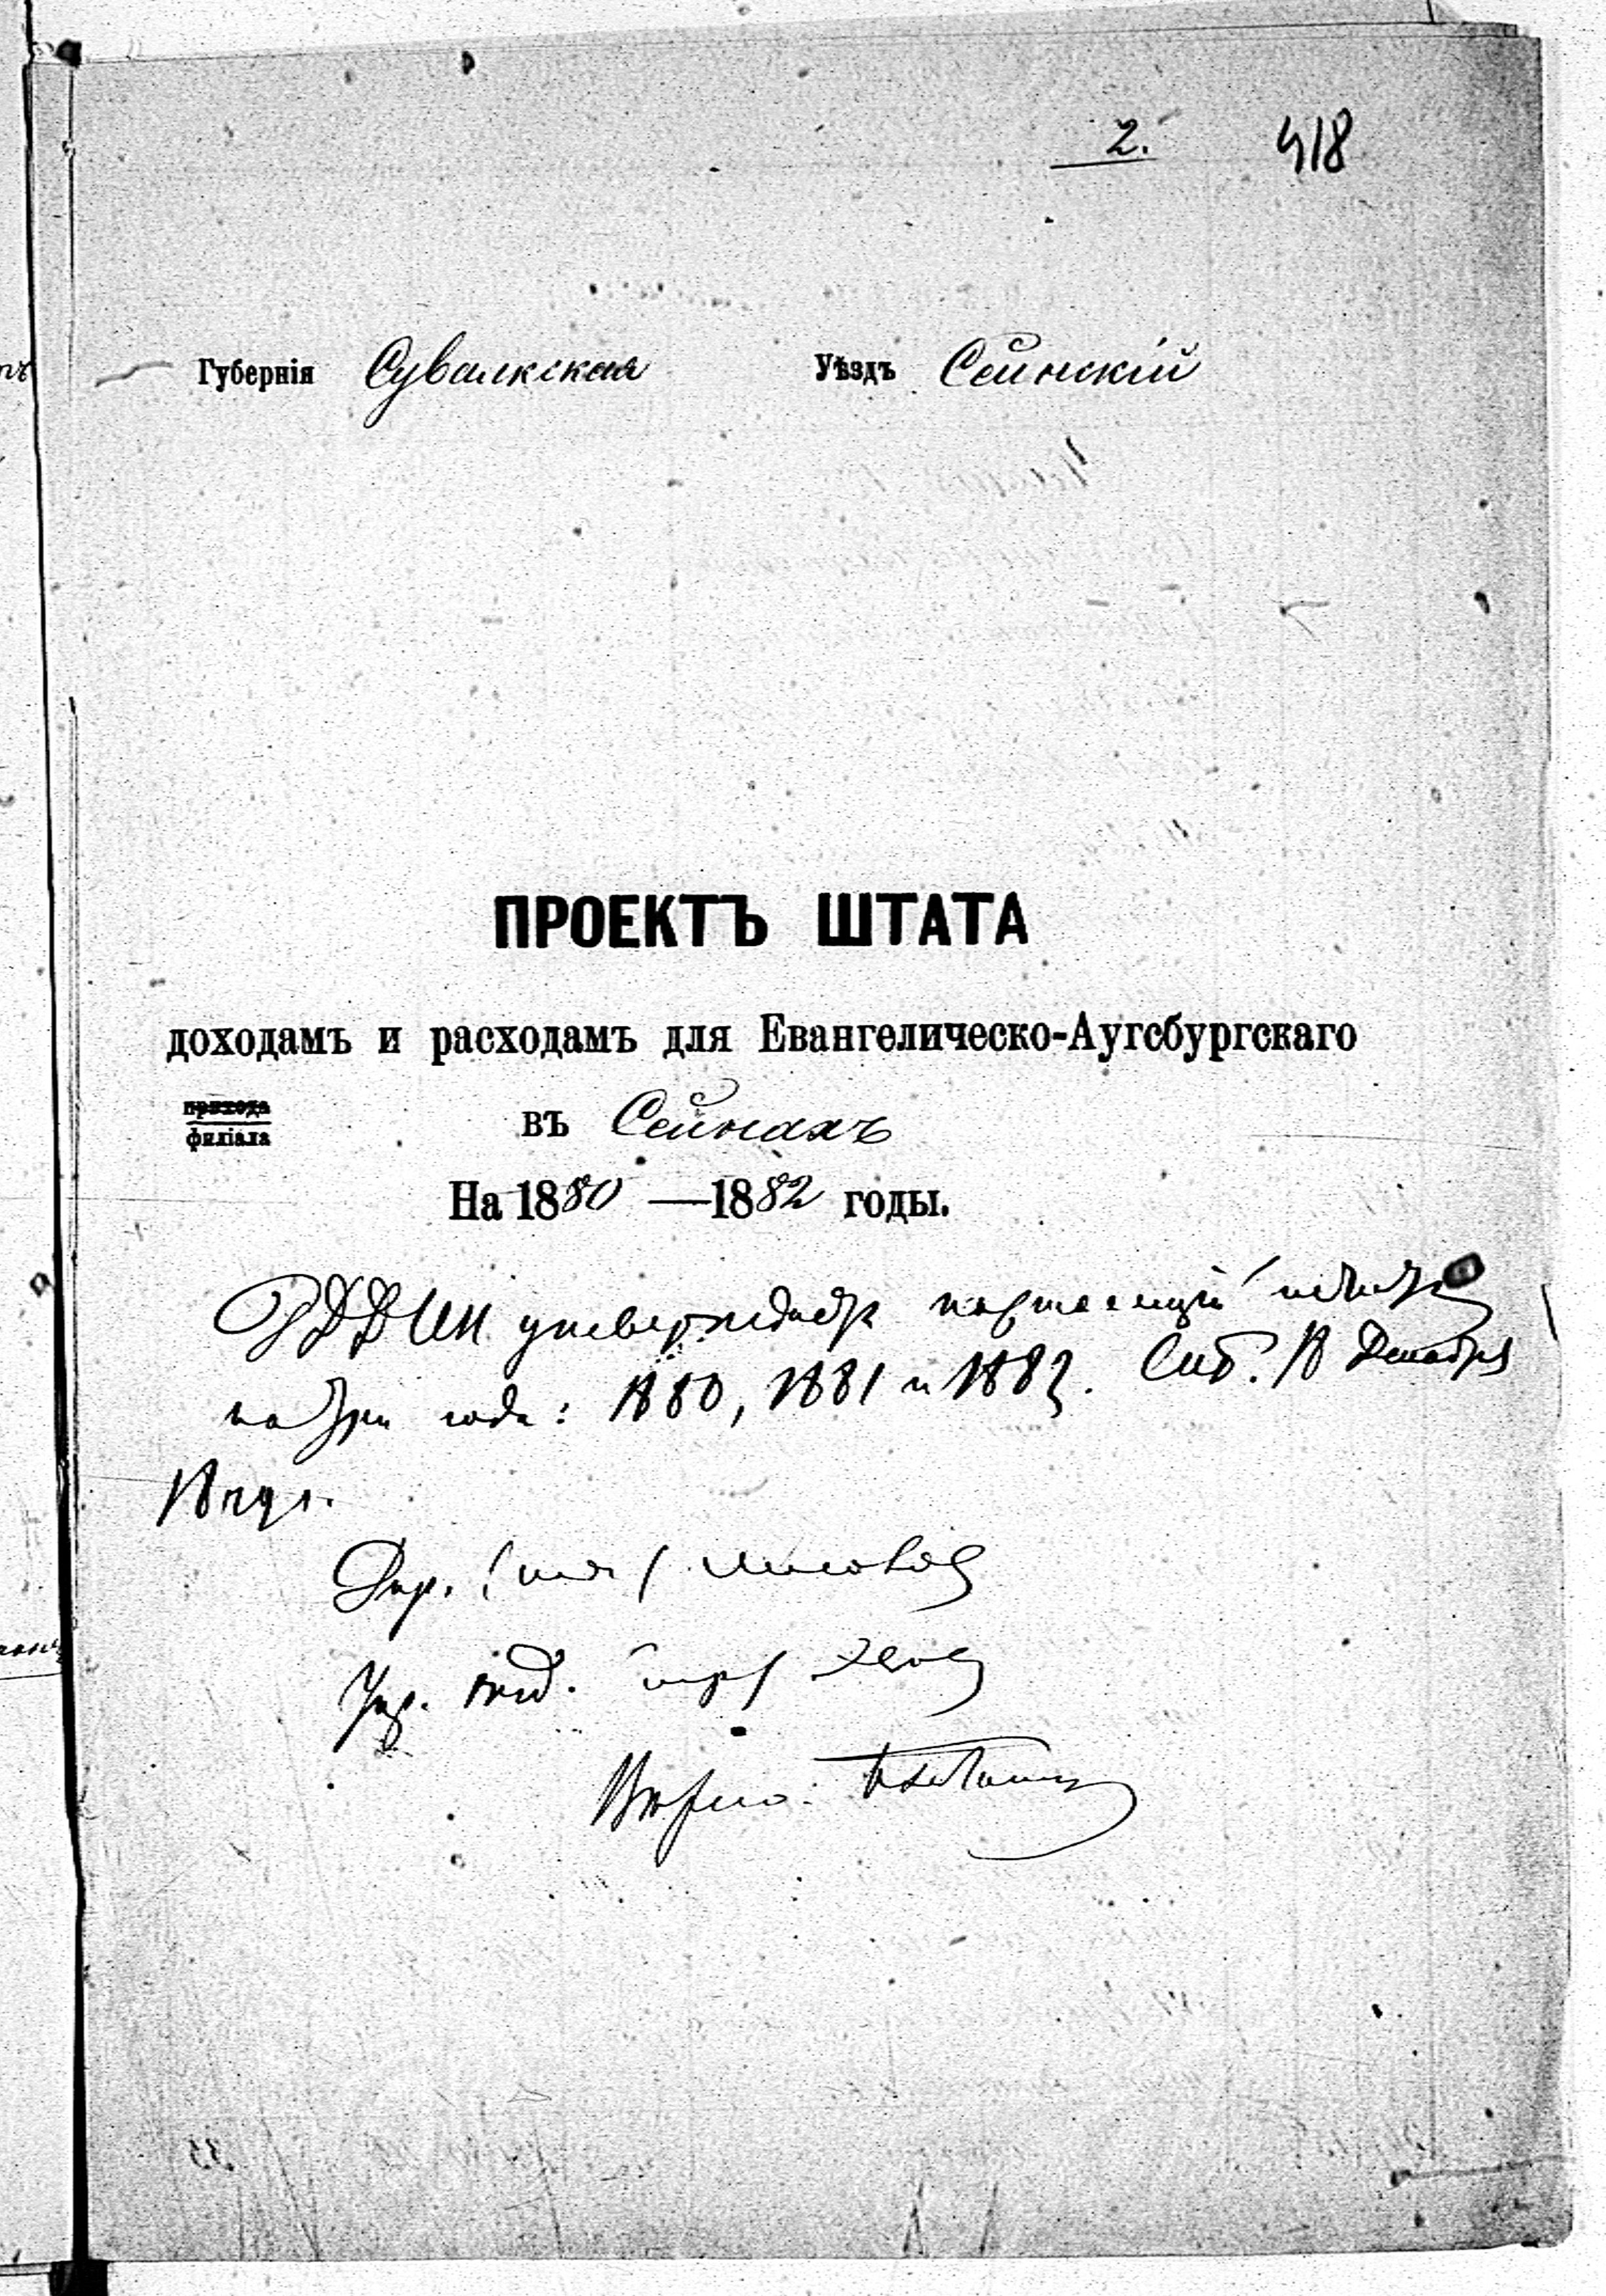 2. 418
Губернія Сувалкская Уѣздъ Сейнскій
ПРОЕКТЪ ШТАТА
доходамъ и расходамъ для Евангелическо-Аугсбургскаго
прихода
филіала
въ Сейнахъ
На 1880 — 1882 годы.
утверждаетъ настоящій штатъ
на три года: 1880, 1881 и 1882. Спб. 18 Декабря
Дир.
Упр. отд.
Вѣрно: